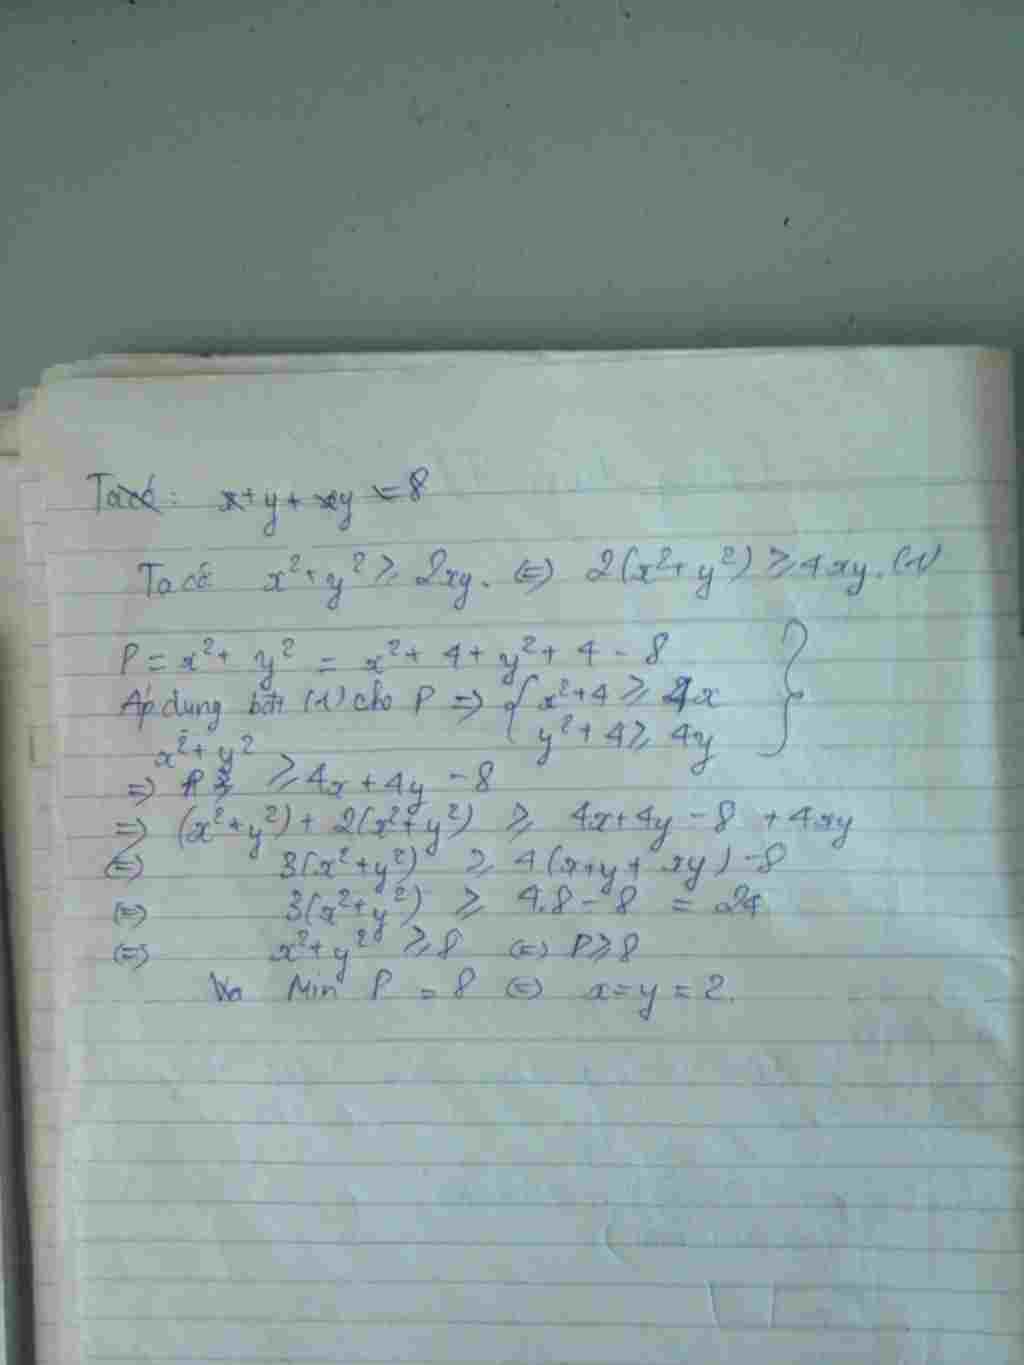 Ta có: x+y+xy = 8
Ta có x²+y² ≥ 2xy. (=) 2(x²+y²) ≥ 4xy. (1)
P = x²+ y² = x²+ 4 + y²+ 4 - 8
Áp dụng bđt (1) cho P => { x²+4 ≥ 4x }
y²+4 ≥ 4y
x²+y²
=> ≥ 4x+4y -8
=> (x²+y²)+ 2(x²+y²) ≥ 4x+4y -8 +4xy
(=) 3(x²+y²) ≥ 4(x+y+ xy) -8
(=) 3(x²+y²) ≥ 4.8 - 8 = 24
(=) x²+y² ≥ 8 (=) P ≥ 8
Min P = 8 (=) x=y=2.